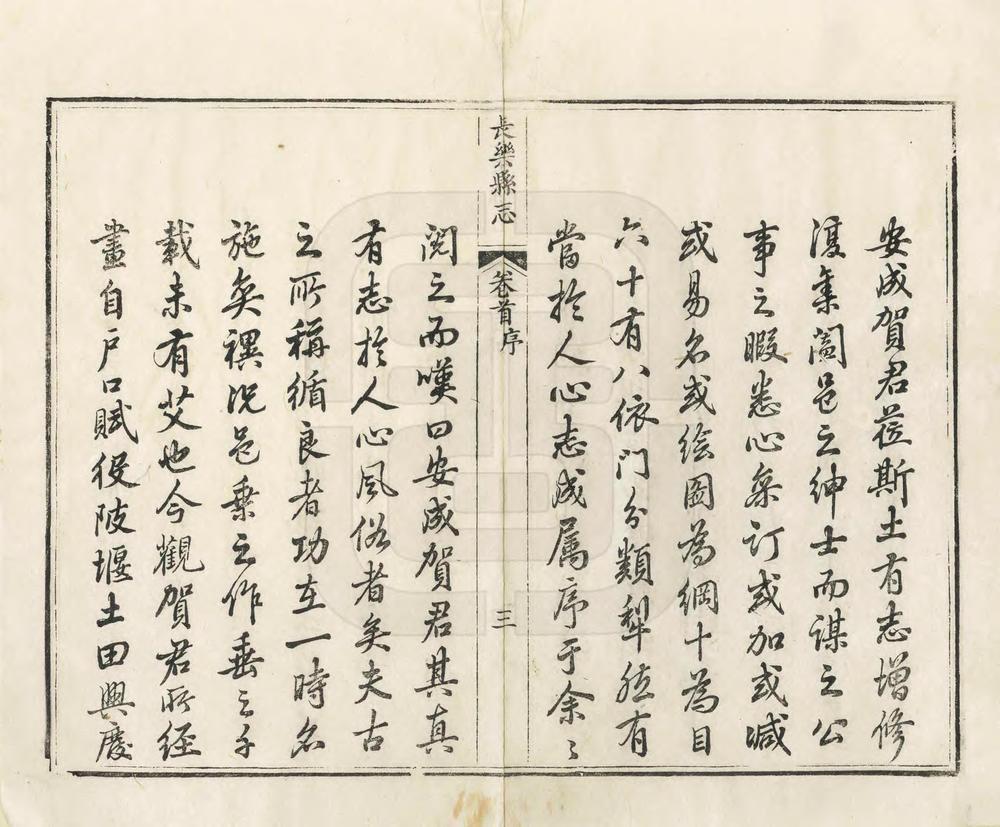 安成賀君莅斯土有志增修
復集闔邑之紳士而謀之公
事之暇悉心叅訂或加或減
或易名或绘圖為綱十為目
六十有八依門分類犁然有
當於人心志成属序于余〻
長樂縣志
卷首序
三
閱之而嘆曰安成賀君其真
有志於人心風俗者矣夫古
之所稱循良者功在一時名
施奕禩况邑乗之作垂之千
載未有艾也今觀賀君所经
畫自户口賦役陂堰土田興廢